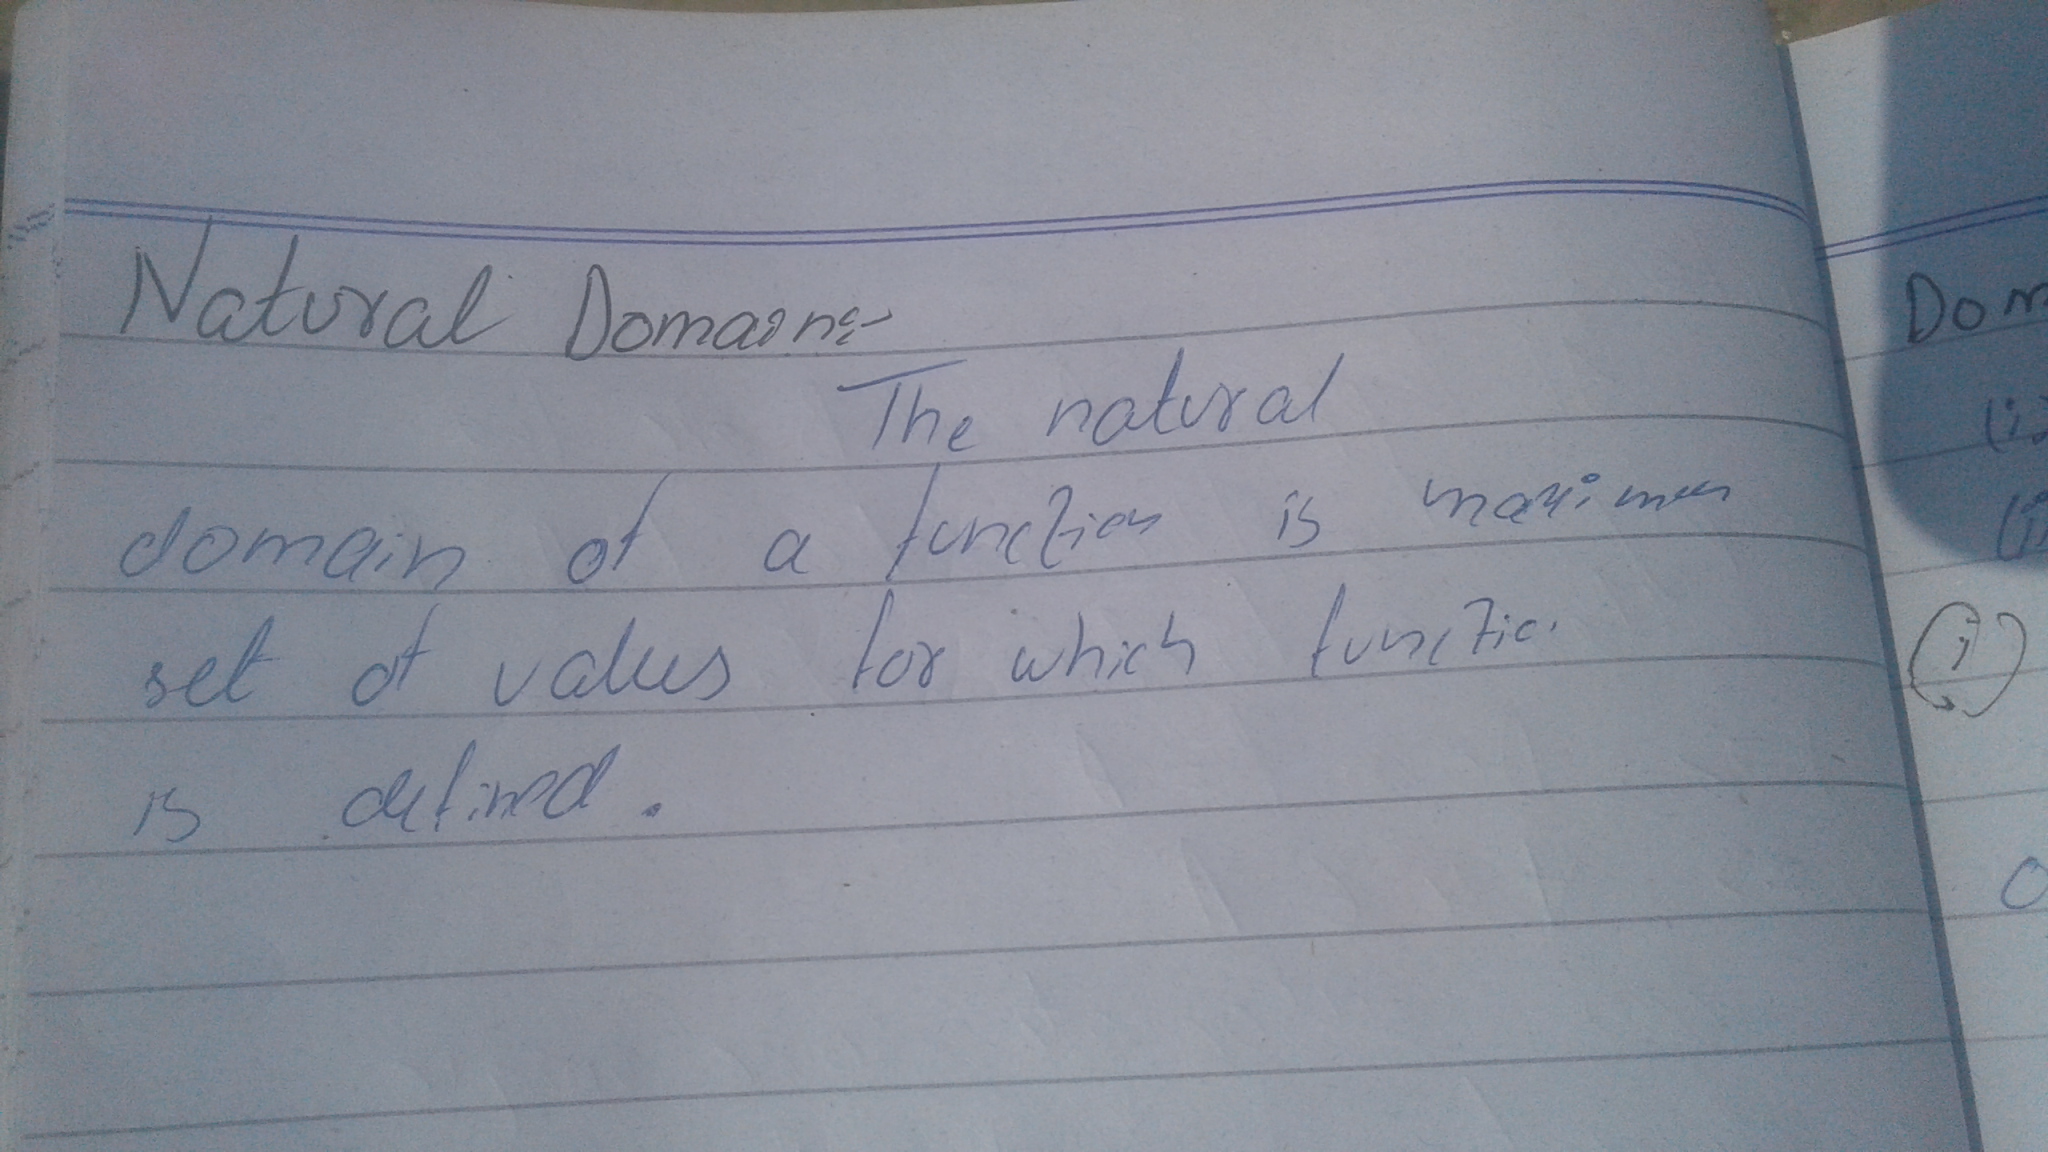 Natural Domain:-
The natural
domain of a function is maximum
set of values for which function
is defined.
Dom
(i)
(ii
(i)